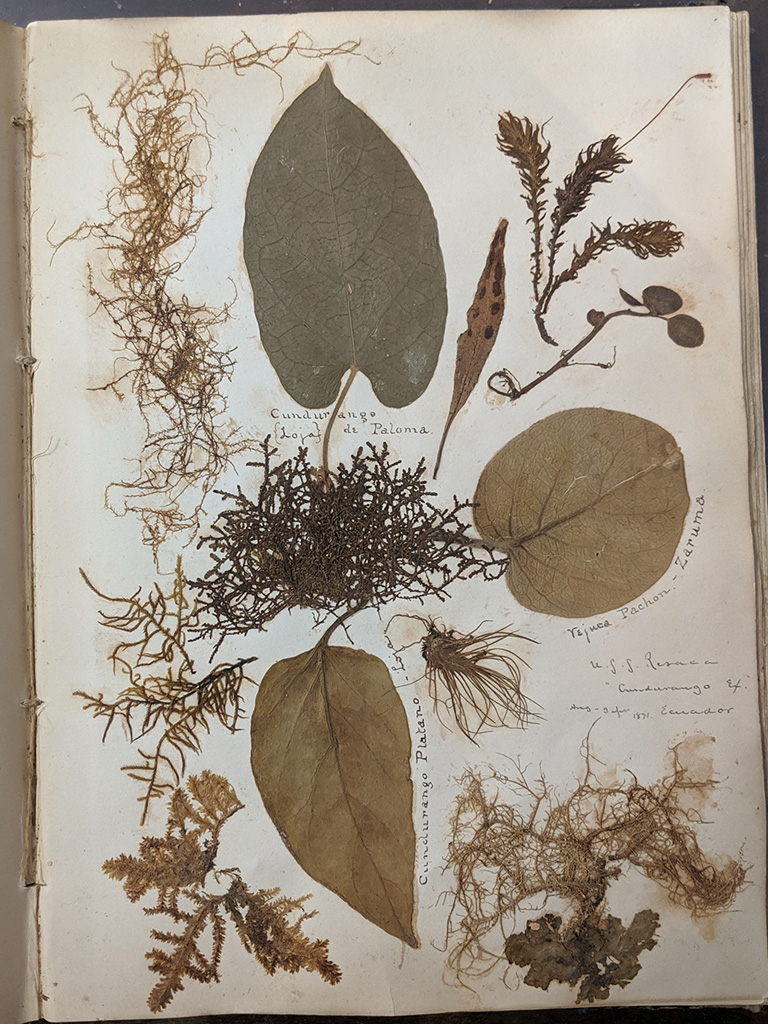 Cundurango
(Loja) de Paloma.
Vejuca Pachon. - Zaruma.
Cundurango Platano - Loja
U.S.S. Resaca
"Cundurango Ex.
Aug - 1871. Ecuador